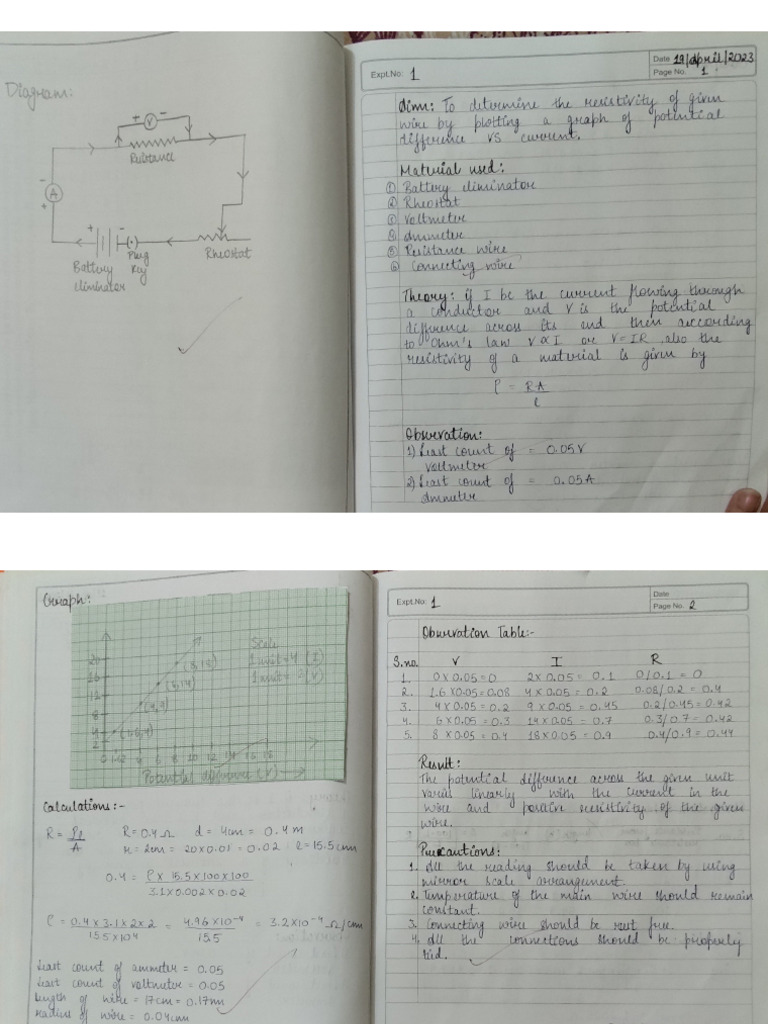 Diagram:
+ V -
Resistance
-
A
+
+ -
Plug
Key
Battery
eliminator
Rheostat
Date 19/April/2023
Expt.No: 1
Page No. 1
Aim: To determine the resistivity of given
wire by plotting a graph of potential
difference vs current.
Material used:
① Battery eliminator
② Rheostat
③ Voltmeter
④ Ammeter
⑤ Resistance wire
⑥ Connecting wire
Theory: if I be the current flowing through
a conductor and V is the potential
difference across its end then according
to Ohm's law V ∝ I or V=IR, also the
resistivity of a material is given by
ρ = RA
l
Observation:
1) Least count of = 0.05V
voltmeter
2) Least count of = 0.05A
Ammeter
Graph:
Scale
1 unit = 4 (I)
1 unit = 2 (V)
20
16
12
8
4
2
(8,18)
(6,14)
(4,9)
(1.6,4)
0 1.2 4 6 8 10 12 14 16
Potential difference (V) →
Calculations:-
R = ρl
A
R=0.4Ω d = 4cm = 0.4m
r = 2cm = 20×0.01 = 0.02 l = 15.5cm
0.4 = ρ × 15.5×100×100
3.1×0.002×0.02
ρ = 0.4×3.1×2×2 = 4.96×10⁻⁴ = 3.2×10⁻⁴ Ω/cm
15.5×10⁴ 15.5
Least count of ammeter = 0.05
Least count of voltmeter = 0.05
Length of wire = 17cm = 0.17m
radius of wire = 0.04cm
Date
Expt.No: 1
Page No. 2
Observation Table:-
S.no. V I R
1. 0×0.05=0 2×0.05=0.1 0/0.1=0
2. 1.6×0.05=0.08 4×0.05=0.2 0.08/0.2=0.4
3. 4×0.05=0.2 9×0.05=0.45 0.2/0.45=0.42
4. 6×0.05=0.3 14×0.05=0.7 0.3/0.7=0.42
5. 8×0.05=0.4 18×0.05=0.9 0.4/0.9=0.44
Result:
The potential difference across the given unit
varies linearly with the current in the
wire and positive resistivity of the given
wire.
Precautions:
1. All the reading should be taken by using
mirror scale arrangement.
2. Temperature of the main wire should remain
constant.
3. Connecting wire should be rust free.
4. All the connections should be properly
tied.